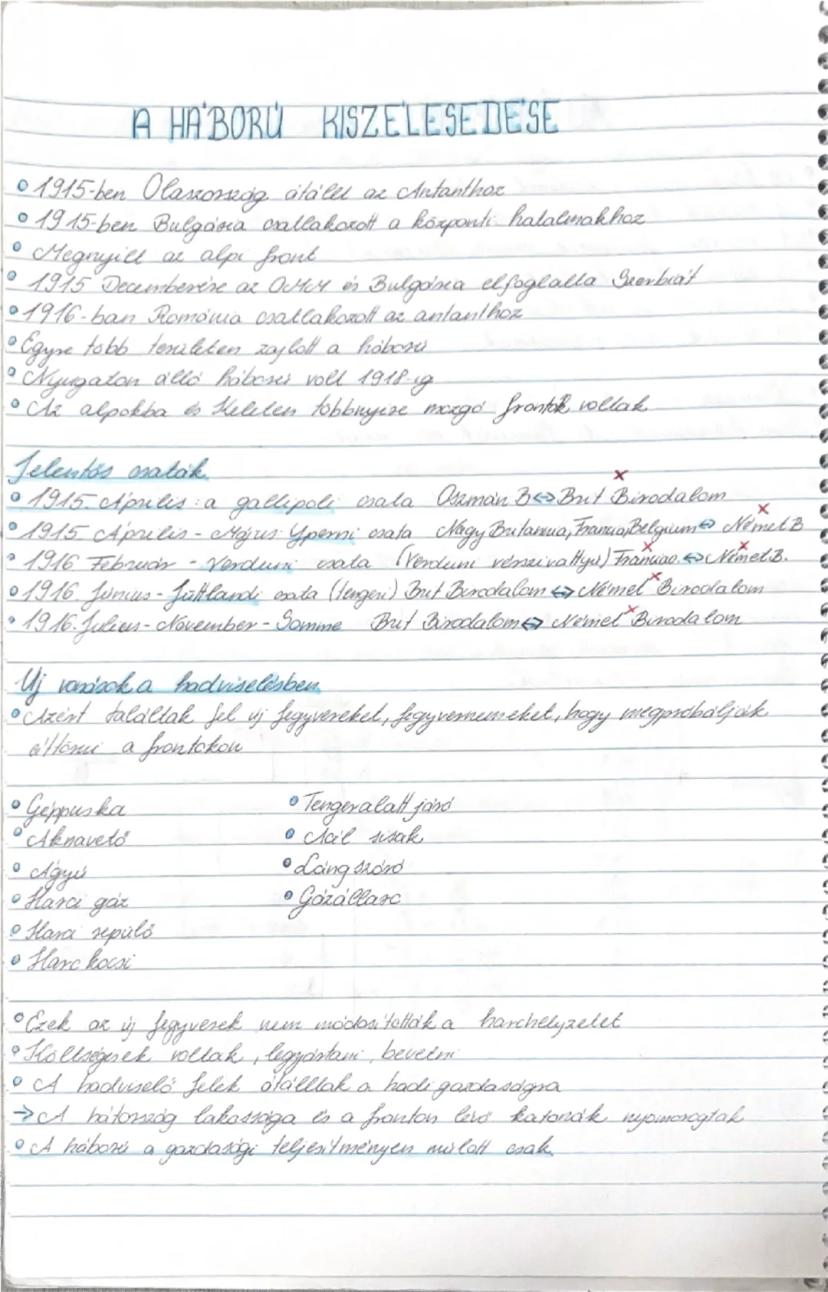 A HÁBORÚ KISZÉLESEDÉSE
• 1915-ben Olaszország átállt az Antanthoz
• 1915-ben Bulgária csatlakozott a központi hatalmakhoz
• Megnyílt az alpi front
• 1915 Decemberére az OMM és Bulgária elfoglalta Szerbiát
• 1916-ban Románia csatlakozott az antanthoz
• Egyre több területen zajlott a háború
• Nyugaton álló háború volt 1918-ig
• Az alpokba és Keleten többnyire mozgó frontok voltak
Jelentős csaták
x
• 1915. Április: a gallipoli csata Oszmán B ⇔ Brit Birodalom
x
• 1915 Április - Május: Yperni csata Nagy Britannia, Francia, Belgium ⇔ Német B
x x
• 1916 Február - Verduni csata (Verduni vérszivattyú) Franciao. ⇔ Német B.
x
• 1916. Június - Jüttlandi csata (tengeri) Brit Birodalom ⇔ Német Birodalom
x
• 1916. Július - November - Somme Brit Birodalom ⇔ Német Birodalom
Új vonások a hadviselésben
• Azért találtak fel új fegyvereket, fegyvernemeket, hogy megpróbálják
áttörni a frontokon
• Géppuska • Tengeralatt járó
• Aknavető • Acél sisak
• Ágyú • Láng szóró
• Harci gáz • Gázállarc
• Harci repülő
• Harc kocsi
• Ezek az új fegyverek nem módosították a harchelyzetet
• Költségesek voltak, legyártani, bevetni
• A hadviselő felek átálltak a hadi gazdaságra
→ A hátország lakossága és a fronton lévő katonák nyomorogtak
• A háború a gazdasági teljesítményen múlott csak